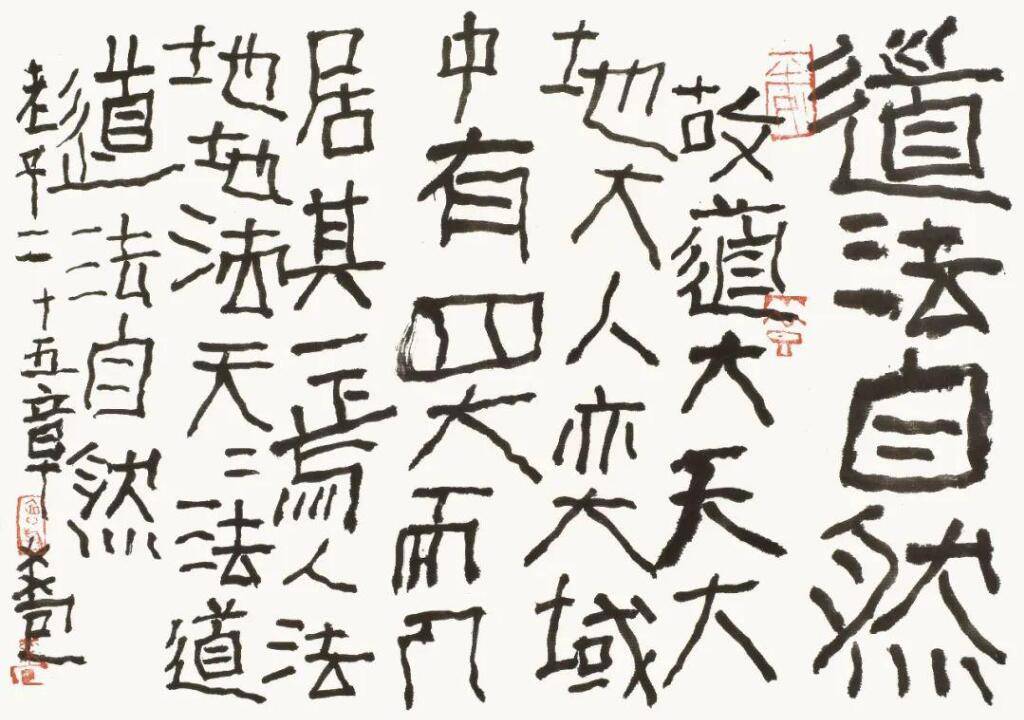 道法自然
故道大天大
地大人亦大域
中有四大而
居其一焉人法
地地法天〻法道
道法自然
老子二十五章